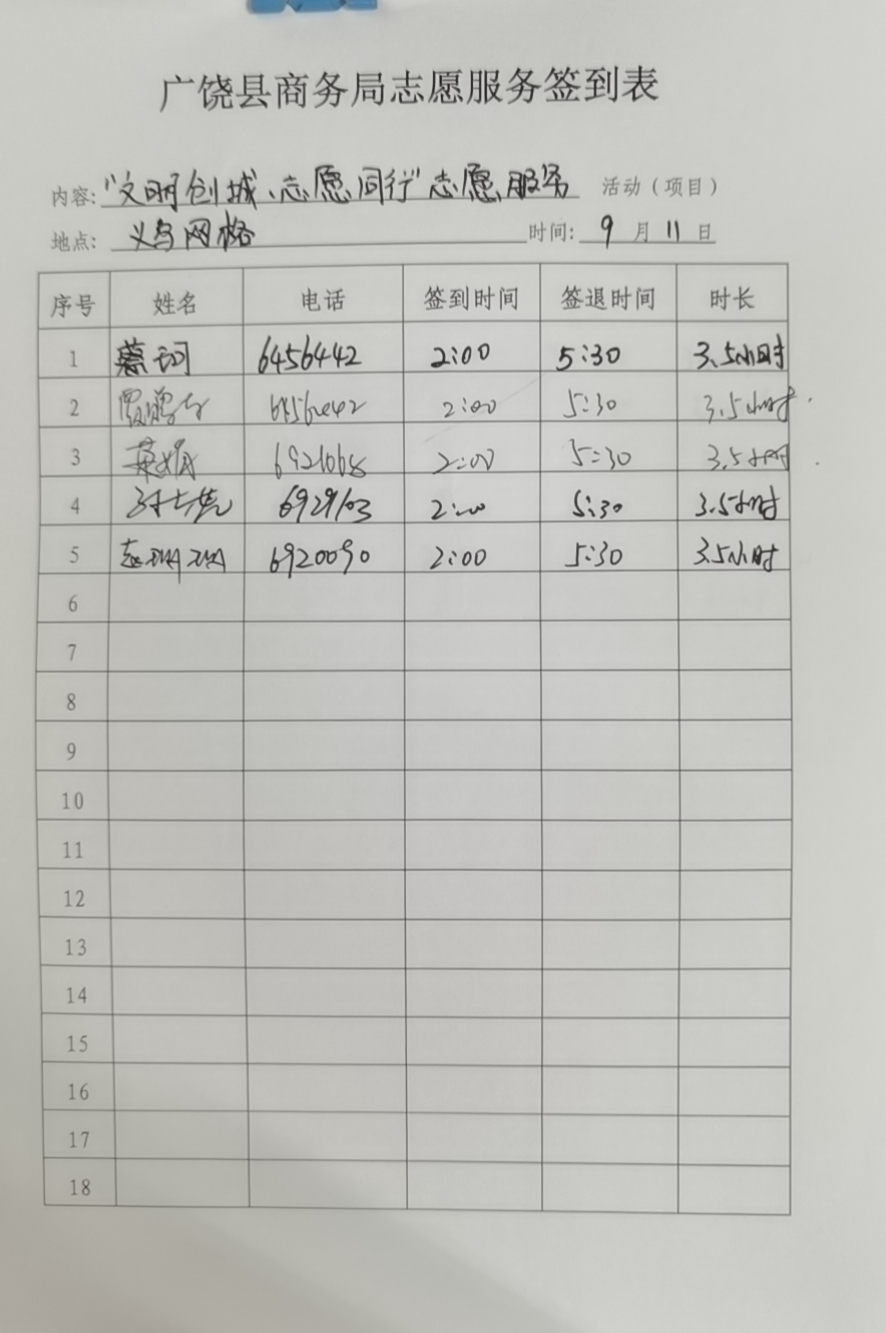 广饶县商务局志愿服务签到表
内容:"文明创城、志愿同行"志愿服务 活动(项目)
地点: 义乌网格 时间: 9 月 11 日
序号 姓名 电话 签到时间 签退时间 时长
1 6456442 2:00 5:30 3.5小时
2 2:00 5:30 3.5小时
3 6921068 2:00 5:30 3.5小时
4 6929103 2:00 5:30 3.5小时
5 赵珊珊 6920090 2:00 5:30 3.5小时
6
7
8
9
10
11
12
13
14
15
16
17
18